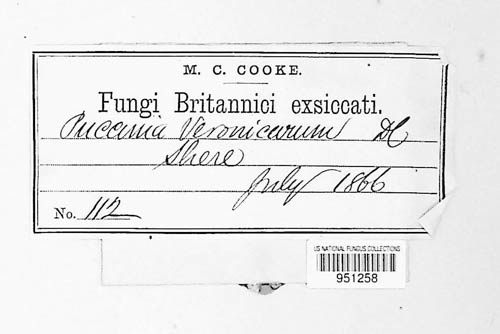 M. C. COOKE.
Fungi Britannici exsiccati.
Puccinia Veronicarum DC
Shere
July 1866
No. 112
US NATIONAL FUNGUS COLLECTIONS
951258